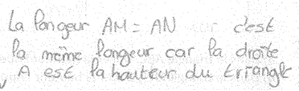 La longeur AM = AN c'est
la même longeur car la droite
A est la hauteur du triangle